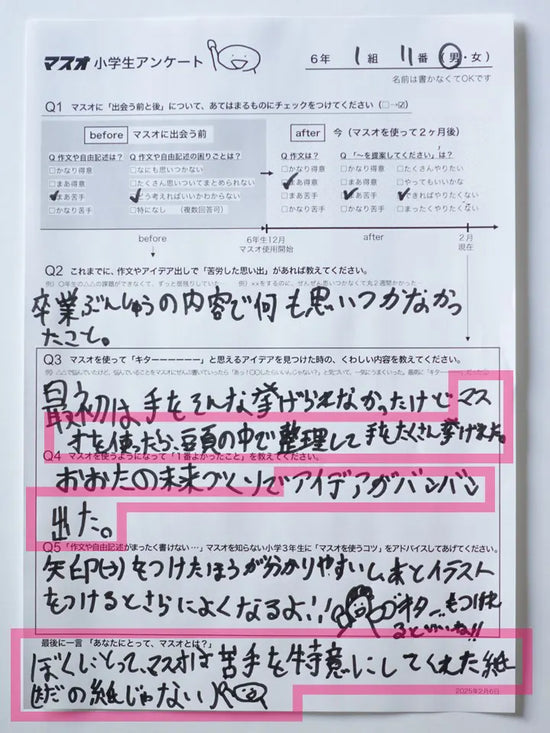 マスオ 小学生アンケート
6年 1組 11番 (男・女)
名前は書かなくてOKです
Q1 マスオに「出会う前と後」について、あてはまるものにチェックをつけてください(□→☑)
before マスオに出会う前
after 今(マスオを使って2ヶ月後)
Q 作文や自由記述は? Q 作文や自由記述の困りごとは?
Q 作文は? Q 「〜を提案してください」は?
□かなり得意 □なにも思いつかない
□かなり得意 □かなり得意 □たくさんやりたい
□まあ得意 □たくさん思いついてまとめられない
□まあ得意 □まあ得意 □やってもいいかな
□まあ苦手 □どう考えればいいかわからない
□まあ苦手 □まあ苦手 □できればやりたくない
□かなり苦手 □特になし (複数回答可)
□かなり苦手 □かなり苦手 □まったくやりたくない
before
6年生12月
マスオ使用開始
after
2月
現在
Q2 これまでに、作文やアイデア出しで「苦労した思い出」があれば教えてください。
卒業ぶんしゅうの内容で何も思いつかなかっ
たこと。
Q3 マスオを使って「キターーーーーー」と思えるアイデアを見つけた時の、くわしい内容を教えてください。
最初は手をそんな挙げられなかったけどマス
オを使たら、頭の中で整理して手をたくさん挙げれた。
Q4 マスオを使うようになって「1番よかったこと」を教えてください。
おおたの未来づくりでアイデアがバンバン
出た。
Q5 「作文や自由記述がまったく書けない…」マスオを知らない小学3年生に「マスオを使うコツ」をアドバイスしてあげてください。
矢印(→)をつけたほうが分かりやすいし、あとイラスト
をつけるとさらによくなるよ!!
キター、もつけれ
るといいね!!
最後に一言「あなたにとって、マスオとは?」
ぼくにとって、マスオは苦手を特意にしてくれた紙
ただの紙じゃない
2025年2月6日